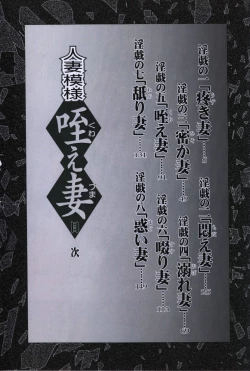 人妻模様
咥え妻
くわ
つま
目次
淫戯の一「疼き妻」……5
淫戯の二「悶え妻」……25
淫戯の三「密か妻」……49
淫戯の四「溺れ妻」……
淫戯の五「咥え妻」……
淫戯の六「啜り妻」……113
淫戯の七「舐り妻」……131
淫戯の八「惑い妻」……149